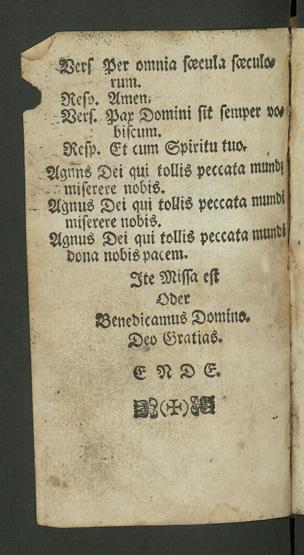 Vers Per omnia sæcula sæculo-
rum.
Resp. Amen.
Vers. Pax Domini sit semper vo-
biscum.
Resp. Et cum Spiritu tuo.
Agnns Dei qui tollis peccata mundi
miserere nobis.
Agnus Dei qui tollis peccata mundi
miserere nobis.
Agnus Dei qui tollis peccata mundi
dona nobis pacem.
Ite Missa est
Oder
Benedicamus Domino.
Deo Gratias.
E N D E.